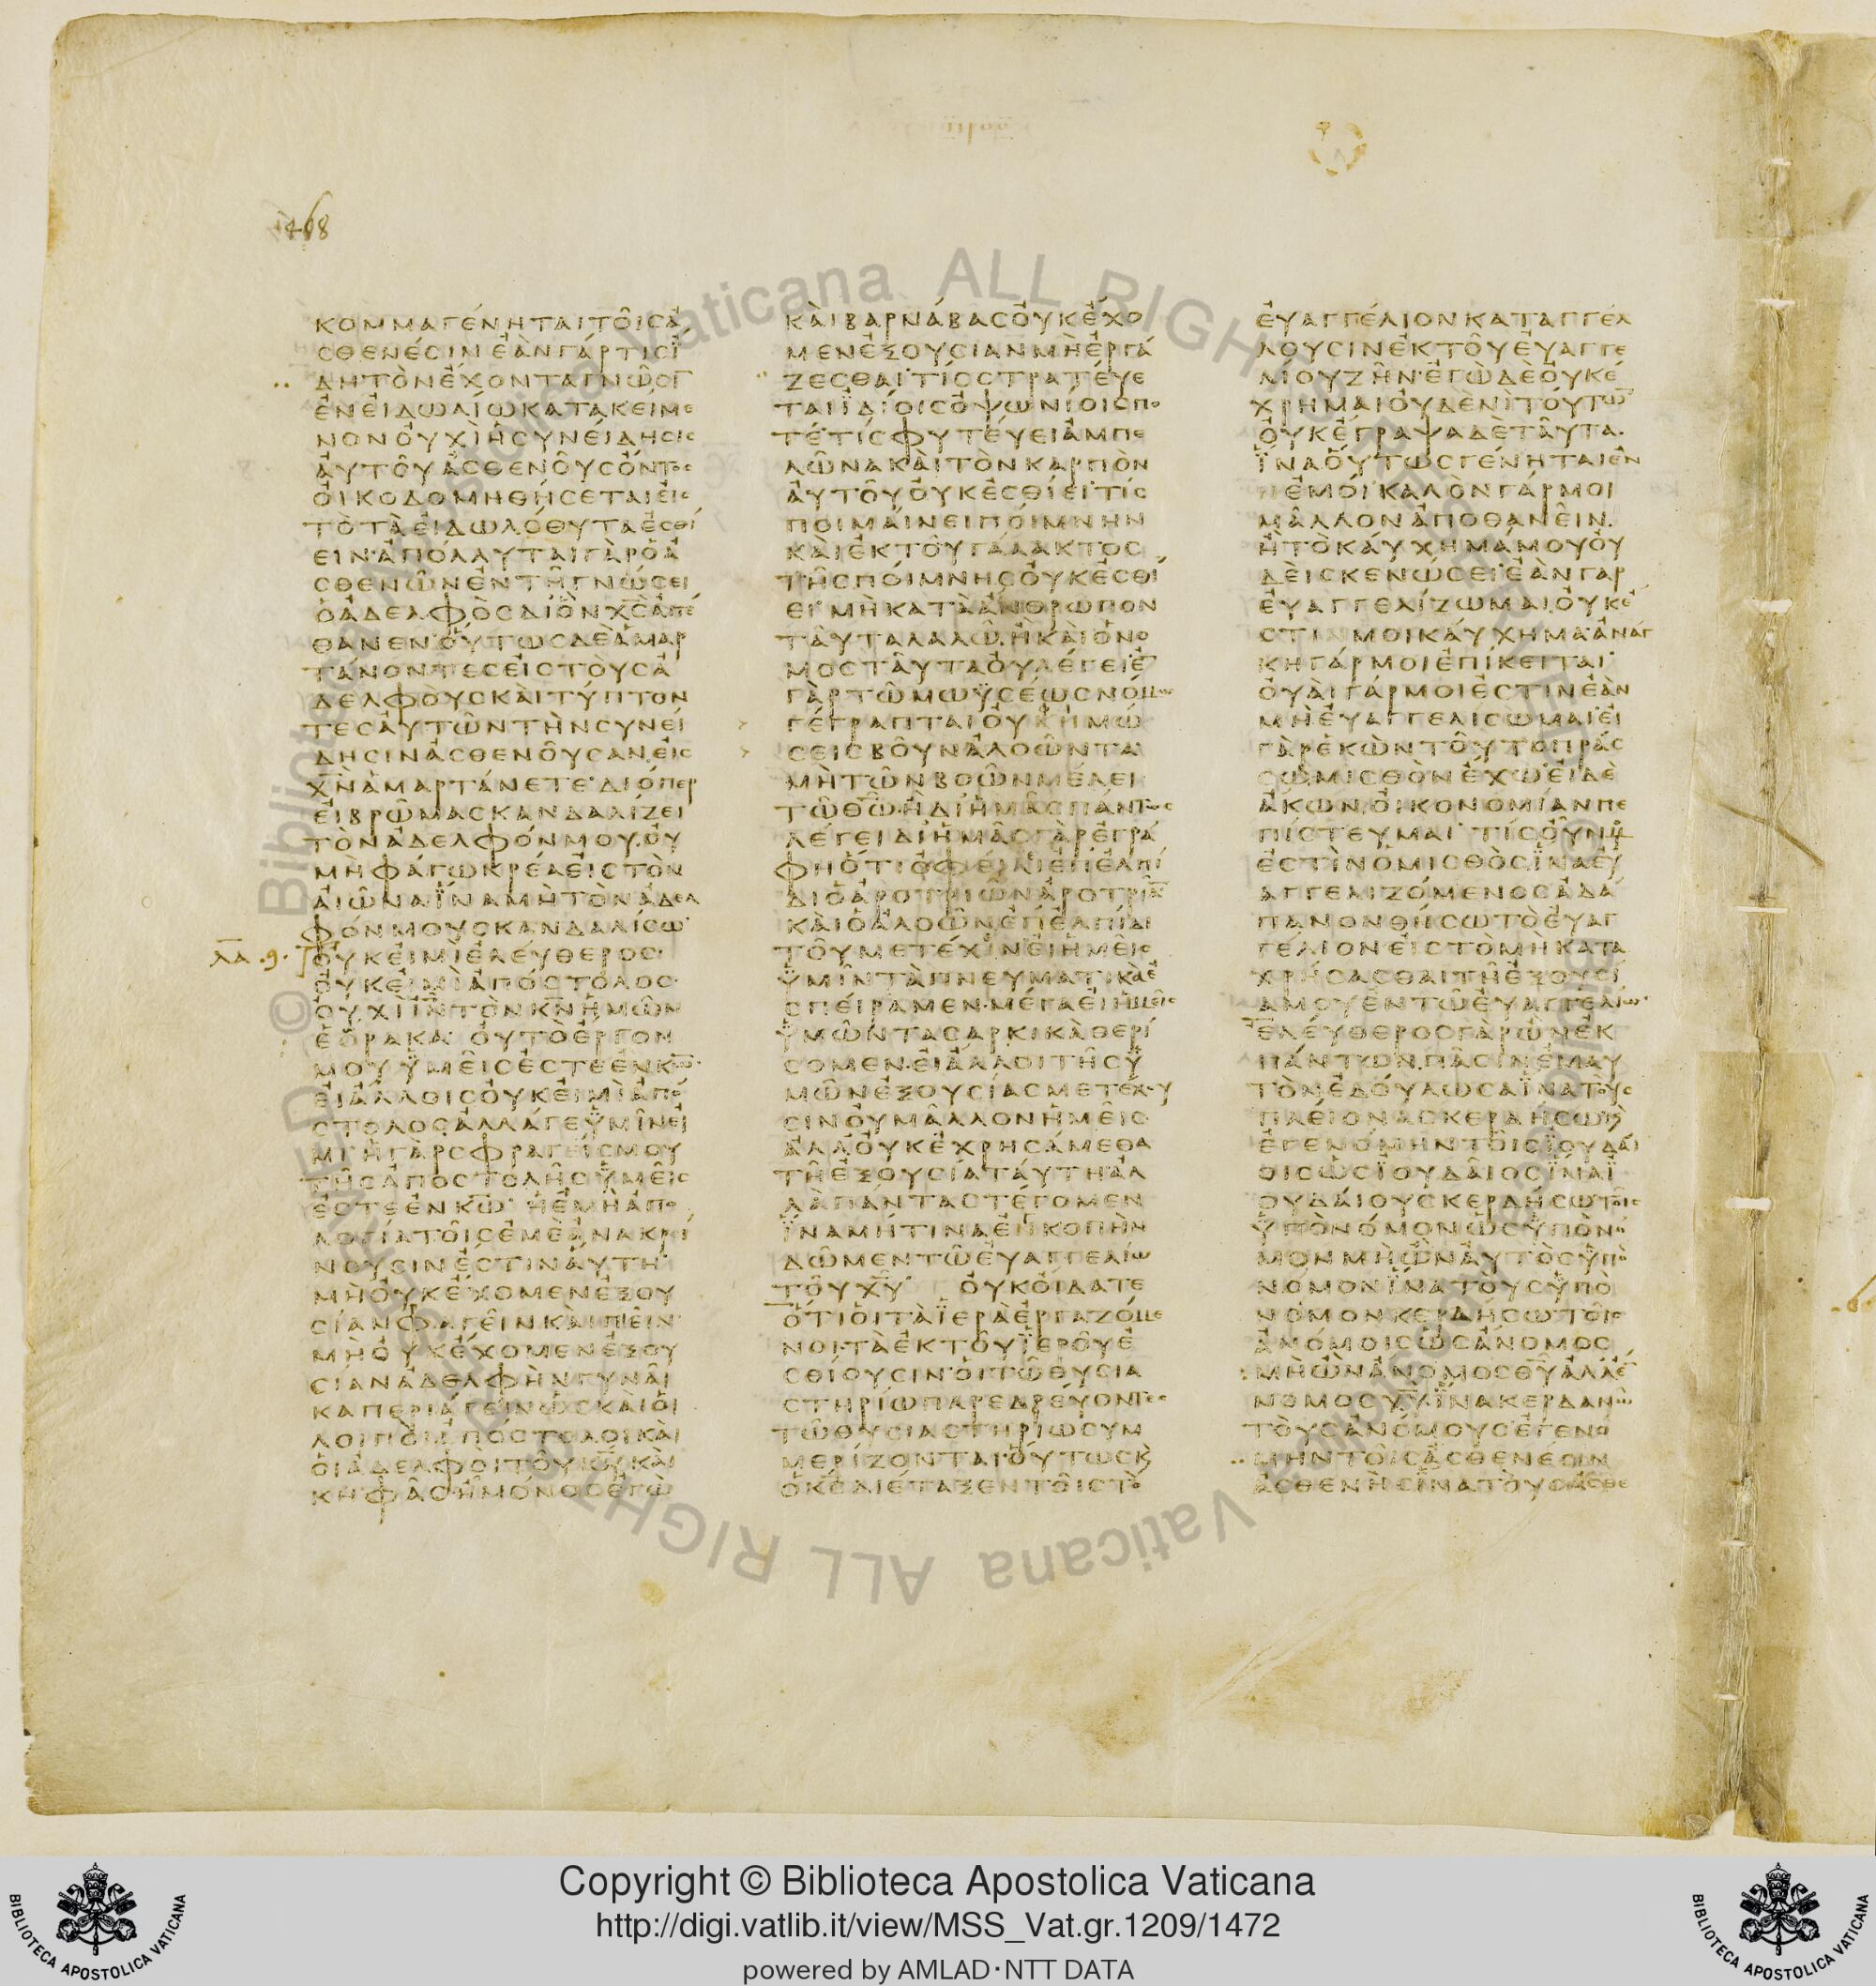 1468
ΚΟΜΜΑΓΕΝΗΤΑΙΤΟΙСΑ
СΘΕΝΕСΙΝΕΑΝΓΑΡΤΙСΪ
ΔΗΤΟΝΕΧΟΝΤΑΓΝΩСΙ
ΕΝΕΙΔΩΛΙΩΚΑΤΑΚΕΙΜΕ
ΝΟΝΟΥΧΙΗСΥΝΕΙΔΗСΙС
ΑΥΤΟΥΑСΘΕΝΟΥСΟΝΤΟС
ΟΙΚΟΔΟΜΗΘΗСΕΤΑΙΕΙС
ΤΟΤΑΕΙΔΩΛΟΘΥΤΑΕСΘΙ
ΕΙΝ·ΑΠΟΛΛΥΤΑΙΓΑΡΟΑ
СΘΕΝΩΝΕΝΤΗΓΝΩСΕΙ
ΟΑΔΕΛΦΟСΔΙΟΝΧ̅С̅ΑΠΕ
ΘΑΝΕΝ·ΟΥΤΩСΔΕΑΜΑΡ
ΤΑΝΟΝΤΕСΕΙСΤΟΥСΑ
ΔΕΛΦΟΥСΚΑΙΤΥΠΤΟΝ
ΤΕСΑΥΤΩΝΤΗΝСΥΝΕΙ
ΔΗСΙΝΑСΘΕΝΟΥСΑΝ.ΕΙС
Χ̅Ν̅ΑΜΑΡΤΑΝΕΤΕ·ΔΙΟΠΕΡ
ΕΙΒΡΩΜΑСΚΑΝΔΑΛΙΖΕΙ
ΤΟΝΑΔΕΛΦΟΝΜΟΥ.ΟΥ
ΜΗΦΑΓΩΚΡΕΑΕΙСΤΟΝ
ΑΙΩΝΑΪΝΑΜΗΤΟΝΑΔΕΛ
ΦΟΝΜΟΥСΚΑΝΔΑΛΙСΩ·
Λ̅Α̅ .9. ΟΥΚΕΙΜΙΕΛΕΥΘΕΡΟС·
ΟΥΚΕΙΜΙΑΠΟСΤΟΛΟС·
ΟΥΧΙΙ̅Ν̅ΤΟΝΚ̅Ν̅ΗΜΩΝ
ΕΟΡΑΚΑ· ΟΥΤΟΕΡΓΟΝ
ΜΟΥΫΜΕΙСΕСΤΕΕΝΚ̅Ω̅·
ΕΙΑΛΛΟΙСΟΥΚΕΙΜΙΑΠΟ
СΤΟΛΟСΑΛΛΑΓΕΫΜΙΝΕΙ
ΜΙΗΓΑΡСΦΡΑΓΕΙСΜΟΥ
ΤΗСΑΠΟСΤΟΛΗСΫΜΕΙС
ΕСΤΕΕΝΚ̅Ω̅· ΗΕΜΗΑΠΟ
ΛΟΓΙΑΤΟΙСΕΜΕΑΝΑΚΡΙ
ΝΟΥСΙΝΕСΤΙΝΑΥΤΗ·
ΜΗΟΥΚΕΧΟΜΕΝΕΞΟΥ
СΙΑΝΦΑΓΕΙΝΚΑΙΠΙΕΙΝ
ΜΗΟΥΚΕΧΟΜΕΝΕΞΟΥ
СΙΑΝΑΔΕΛΦΗΝΓΥΝΑΙ
ΚΑΠΕΡΙΑΓΕΙΝΩСΚΑΙΟΙ
ΛΟΙΠΟΙΑΠΟСΤΟΛΟΙΚΑΙ
ΟΙΑΔΕΛΦΟΙΤΟΥΚ̅Υ̅ΚΑΙ
ΚΗΦΑС·ΗΜΟΝΟСΕΓΩ
ΚΑΙΒΑΡΝΑΒΑСΟΥΚΕΧΟ
ΜΕΝΕΞΟΥСΙΑΝΜΗΕΡΓΑ
ΖΕСΘΑΙ·ΤΙССΤΡΑΤΕΥΕ
ΤΑΙΪΔΙΟΙСΟΨΩΝΙΟΙСΠΟ
ΤΕ·ΤΙСΦΥΤΕΥΕΙΑΜΠΕ
ΛΩΝΑΚΑΙΤΟΝΚΑΡΠΟΝ
ΑΥΤΟΥΟΥΚΕСΘΙΕΙ·ΤΙС
ΠΟΙΜΑΙΝΕΙΠΟΙΜΝΗΝ
ΚΑΙΕΚΤΟΥΓΑΛΑΚΤΟС
ΤΗСΠΟΙΜΝΗСΟΥΚΕСΘΙ
ΕΙ·ΜΗΚΑΤΑΑΝΘΡΩΠΟΝ
ΤΑΥΤΑΛΑΛΩ.ΗΚΑΙΟΝΟ
ΜΟСΤΑΥΤΑΟΥΛΕΓΕΙ·Ε̅
ΓΑΡΤΩΜΩΥСΕΩСΝΟΜΩ
ΓΕΓΡΑΠΤΑΙΟΥΚΗΜΩ
СΕΙСΒΟΥΝΑΛΟΩΝΤΑ
ΜΗΤΩΝΒΟΩΝΜΕΛΕΙ
ΤΩΘ̅Ω̅·ΗΔΙΗΜΑСΠΑΝΤΩС
ΛΕΓΕΙΔΙΗΜΑСΓΑΡΕΓΡΑ
ΦΗΟΤΙΟΦΕΙΛΙΕΠΕΛΠΙ
ΔΙΟΑΡΟΤΡΙΩΝΑΡΟΤΡΙΑ̅
ΚΑΙΟΑΛΟΩΝΕΠΕΛΠΙΔΙ
ΤΟΥΜΕΤΕΧΙΝΕΙΗΜΕΙС
ΫΜΙΝΤΑΠΝΕΥΜΑΤΙΚΑΕ
СΠΕΙΡΑΜΕΝ·ΜΕΓΑΕΙΗΜΕΙС
ΫΜΩΝΤΑСΑΡΚΙΚΑΘΕΡΙ
СΟΜΕΝ·ΕΙΑΛΛΟΙΤΗСΫ
ΜΩΝΕΞΟΥСΙΑСΜΕΤΕΧΟΥ
СΙΝΟΥΜΑΛΛΟΝΗΜΕΙС·
ΑΛΛΟΥΚΕΧΡΗСΑΜΕΘΑ
ΤΗΕΞΟΥСΙΑΤΑΥΤΗ·ΑΛ
ΛΑΠΑΝΤΑСΤΕΓΟΜΕΝ
ΪΝΑΜΗΤΙΝΑΕΝΚΟΠΗΝ
ΔΩΜΕΝΤΩΕΥΑΓΓΕΛΙΩ
ΤΟΥΧ̅Υ̅· ΟΥΚΟΙΔΑΤΕ
ΟΤΙΟΙΤΑΪΕΡΑΕΡΓΑΖΟΜΕ
ΝΟΙ·ΤΑΕΚΤΟΥΪΕΡΟΥΕ
СΘΙΟΥСΙΝ·ΟΙΤΩΘΥСΙΑ
СΤΗΡΙΩΠΑΡΕΔΡΕΥΟΝΤΕС
ΤΩΘΥСΙΑСΤΗΡΙΩСΥΜ
ΜΕΡΙΖΟΝΤΑΙ·ΟΥΤΩСΚΑΙ
ΟΚ̅С̅ΔΙΕΤΑΞΕΝΤΟΙСΤΟ
ΕΥΑΓΓΕΛΙΟΝΚΑΤΑΓΓΕΛ
ΛΟΥСΙΝΕΚΤΟΥΕΥΑΓΓΕ
ΛΙΟΥΖΗΝ·ΕΓΩΔΕΟΥΚΕ
ΧΡΗΜΑΙΟΥΔΕΝΙΤΟΥΤΩ̅
ΟΥΚΕΓΡΑΨΑΔΕΤΑΥΤΑ·
ΪΝΑΟΥΤΩСΓΕΝΗΤΑΙΕΝ
ΕΜΟΙ·ΚΑΛΟΝΓΑΡΜΟΙ
ΜΑΛΛΟΝΑΠΟΘΑΝΕΙΝ.
ΗΤΟΚΑΥΧΗΜΑΜΟΥΟΥ
ΔΕΙСΚΕΝΩСΕΙ·ΕΑΝΓΑΡ
ΕΥΑΓΓΕΛΙΖΩΜΑΙ.ΟΥΚΕ
СΤΙΝΜΟΙΚΑΥΧΗΜΑ·ΑΝΑΓ
ΚΗΓΑΡΜΟΙΕΠΙΚΕΙΤΑΙ·
ΟΥΑΙΓΑΡΜΟΙΕСΤΙΝΕΑΝ
ΜΗΕΥΑΓΓΕΛΙСΩΜΑΙ·ΕΙ
ΓΑΡΕΚΩΝΤΟΥΤΟΠΡΑС
СΩ.ΜΙСΘΟΝΕΧΩ·ΕΙΔΕ
ΑΚΩΝ.ΟΙΚΟΝΟΜΙΑΝΠΕ
ΠΙСΤΕΥΜΑΙ· ΤΙСΟΥΝΜΟΥ
ΕСΤΙΝΟΜΙСΘΟС.ΪΝΑΕΥ
ΑΓΓΕΛΙΖΟΜΕΝΟСΑΔΑ
ΠΑΝΟΝΘΗСΩΤΟΕΥΑΓ
ΓΕΛΙΟΝΕΙСΤΟΜΗΚΑΤΑ
ΧΡΗСΑСΘΑΙΤΗΕΞΟΥСΙ
ΑΜΟΥΕΝΤΩΕΥΑΓΓΕΛΙΩ·
ΕΛΕΥΘΕΡΟСΓΑΡΩΝΕΚ
ΠΑΝΤΩΝ.ΠΑСΙΝΕΜΑΥ
ΤΟΝΕΔΟΥΛΩСΑΪΝΑΤΟΥС
ΠΛΕΙΟΝΑСΚΕΡΔΗСΩΚΑΙ
ΕΓΕΝΟΜΗΝΤΟΙСΪΟΥΔΑΙ
ΟΙСΩСΪΟΥΔΑΙΟСΪΝΑΪ
ΟΥΔΑΙΟΥСΚΕΡΔΗСΩΤΟΙС
ΫΠΟΝΟΜΟΝΩСΫΠΟΝΟ
ΜΟΝΜΗΩΝΑΥΤΟСΫΠΟ
ΝΟΜΟΝΪΝΑΤΟΥСΫΠΟ
ΝΟΜΟΝΚΕΡΔΗСΩΤΟΙС
ΑΝΟΜΟΙСΩСΑΝΟΜΟС
ΜΗΩΝΑΝΟΜΟСΘ̅Υ̅ΑΛΛΕ̅
ΝΟΜΟСΧ̅Υ̅.ΪΝΑΚΕΡΔΑΝΩ
ΤΟΥСΑΝΟΜΟΥСΕΓΕΝΟ
ΜΗΝΤΟΙСΑСΘΕΝΕСΙΝ
ΑСΘΕΝΗСΪΝΑΤΟΥСΑСΘΕ
© Biblioteca Apostolica Vaticana ALL RIGHTS RESERVED
Copyright © Biblioteca Apostolica Vaticana
http://digi.vatlib.it/view/MSS_Vat.gr.1209/1472
powered by AMLAD·NTT DATA
BIBLIOTECA APOSTOLICA VATICANA
BIBLIOTECA APOSTOLICA VATICANA